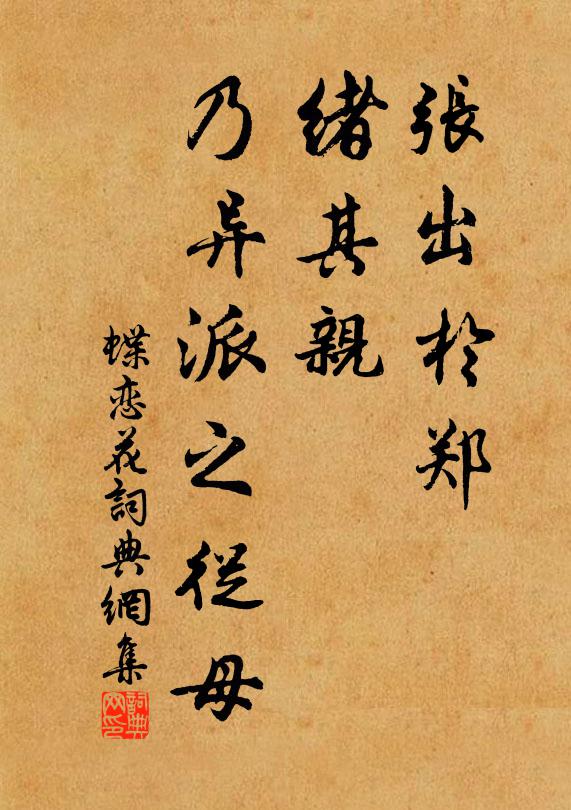 張出於郑
緒其親
乃异派之從母
蝶恋花詞典網集
詞典
网印